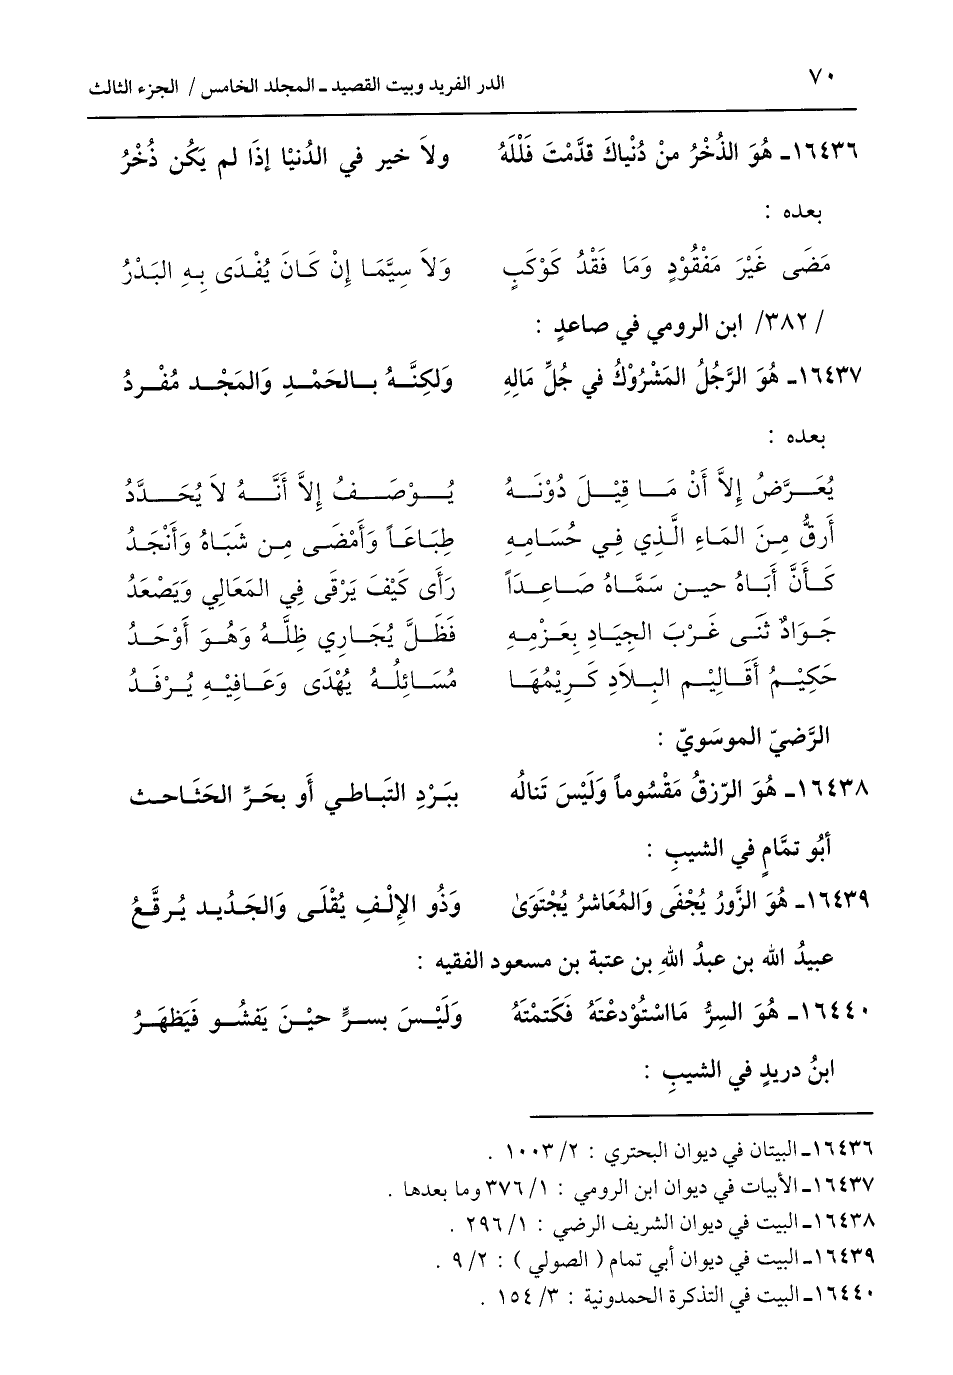 ٧٠ الدر الفريد وبيت القصيد ـ المجلد الخامس / الجزء الثالث
١٦٤٣٦ـ هُوَ الذُخْرُ منْ دُنْياكَ قدَّمْتَ فَلْلَهُ ولاَ خير في الدُنيْا إذَا لم يَكُن ذُخْرُ
بعده :
مَضَى غَيْرَ مَفْقُوْدٍ وَمَا فَقْدُ كَوْكَبٍ وَلاَ سِيَّمَا إِنْ كَانَ يُفْدَى بِهِ البَدْرُ
/ ٣٨٢/ ابن الرومي في صاعدٍ :
١٦٤٣٧ـ هُوَ الرَّجُلُ المَشْرُوْكُ في جُلِّ مَالِهِ وَلكِنَّهُ بالحَمْدِ وَالمَجْد مُفْردُ
بعده :
يُعَرَّضُ إِلاَّ أَنْ مَا قِيْلَ دُوْنَهُ يُوْصَفُ إِلاَّ أَنَّهُ لاَ يُحَدَّدُ
أَرقُّ مِنَ المَاءِ الَّذِي فِي حُسَامِهِ طِبَاعَاً وَأَمْضَى مِن شَبَاهُ وَأَنْجَدُ
كَأَنَّ أَبَاهُ حين سَمَّاهُ صَاعِدَاً رَأَى كَيْفَ يَرْقَى فِي المَعَالِي وَيَصْعَدُ
جَوَادٌ ثَنَى غَرْبَ الجِيَادِ بِعَزْمِهِ فَظَلَّ يُجَارِي ظِلَّهُ وَهُوَ أَوْحَدُ
حَكِيْمُ أَقَالِيْمِ البِلاَدِ كَرِيْمُهَا مُسَائِلُهُ يُهْدَى وَعَافِيْهِ يُرْفَدُ
الرَّضيّ الموسَويّ :
١٦٤٣٨ـ هُوَ الرّزقُ مَقْسُوماً وَلَيْسَ تَنالُه ببَرْدِ التَبـاطي أَو بحَرِّ الحَثَاحث
أبُو تمَّامٍ في الشيبِ :
١٦٤٣٩ـ هُوَ الزَّورُ يُجْفَى وَالمُعَاشرُ يُجْتَوَىٰ وَذُو الإِلْفِ يُقْلَى وَالجَديد يُرقَّعُ
عبيدُ الله بن عبدُ اللهِ بن عتبة بن مسعود الفقيه :
١٦٤٤٠ـ هُوَ السِرُّ مَااسْتُوْدعْتَهُ فَكَتمْتَهُ وَلَيْسَ بسرٍّ حيْنَ يَفشُو فَيَظهَرُ
ابنُ دريدٍ في الشيبِ :
١٦٤٣٦ـ البيتان في ديوان البحتري : ٢/ ١٠٠٣ .
١٦٤٣٧ـ الأبيات في ديوان ابن الرومي : ١/ ٣٧٦ وما بعدها .
١٦٤٣٨ـ البيت في ديوان الشريف الرضي : ١/ ٢٩٦ .
١٦٤٣٩ـ البيت في ديوان أبي تمام ( الصولي ) : ٢/ ٩ .
١٦٤٤٠ـ البيت في التذكرة الحمدونية : ٣/ ١٥٤ .